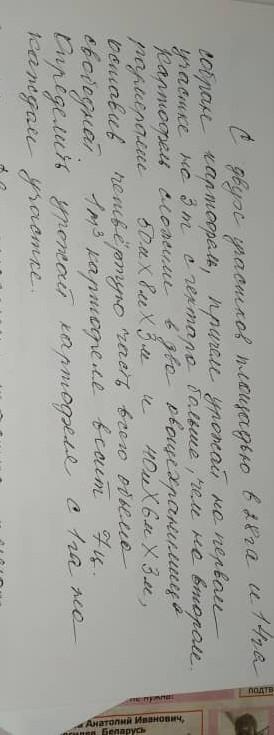 С двух участков площадью в 28га и 14га
собран картофель, причем урожай на первом
участке на 3т с гектара больше, чем на втором.
Картофель сложили в два овощехранилища
размерами 50м х 8м х 3м и 40м х 6м х 3м,
оставив четвёртую часть всего объема
свободной. 1м³ картофеля весит 7ц.
Определить урожай картофеля с 1га на
каждом участке.
не нужна!
подтв
а Анатолий Иванович,
Беларусь